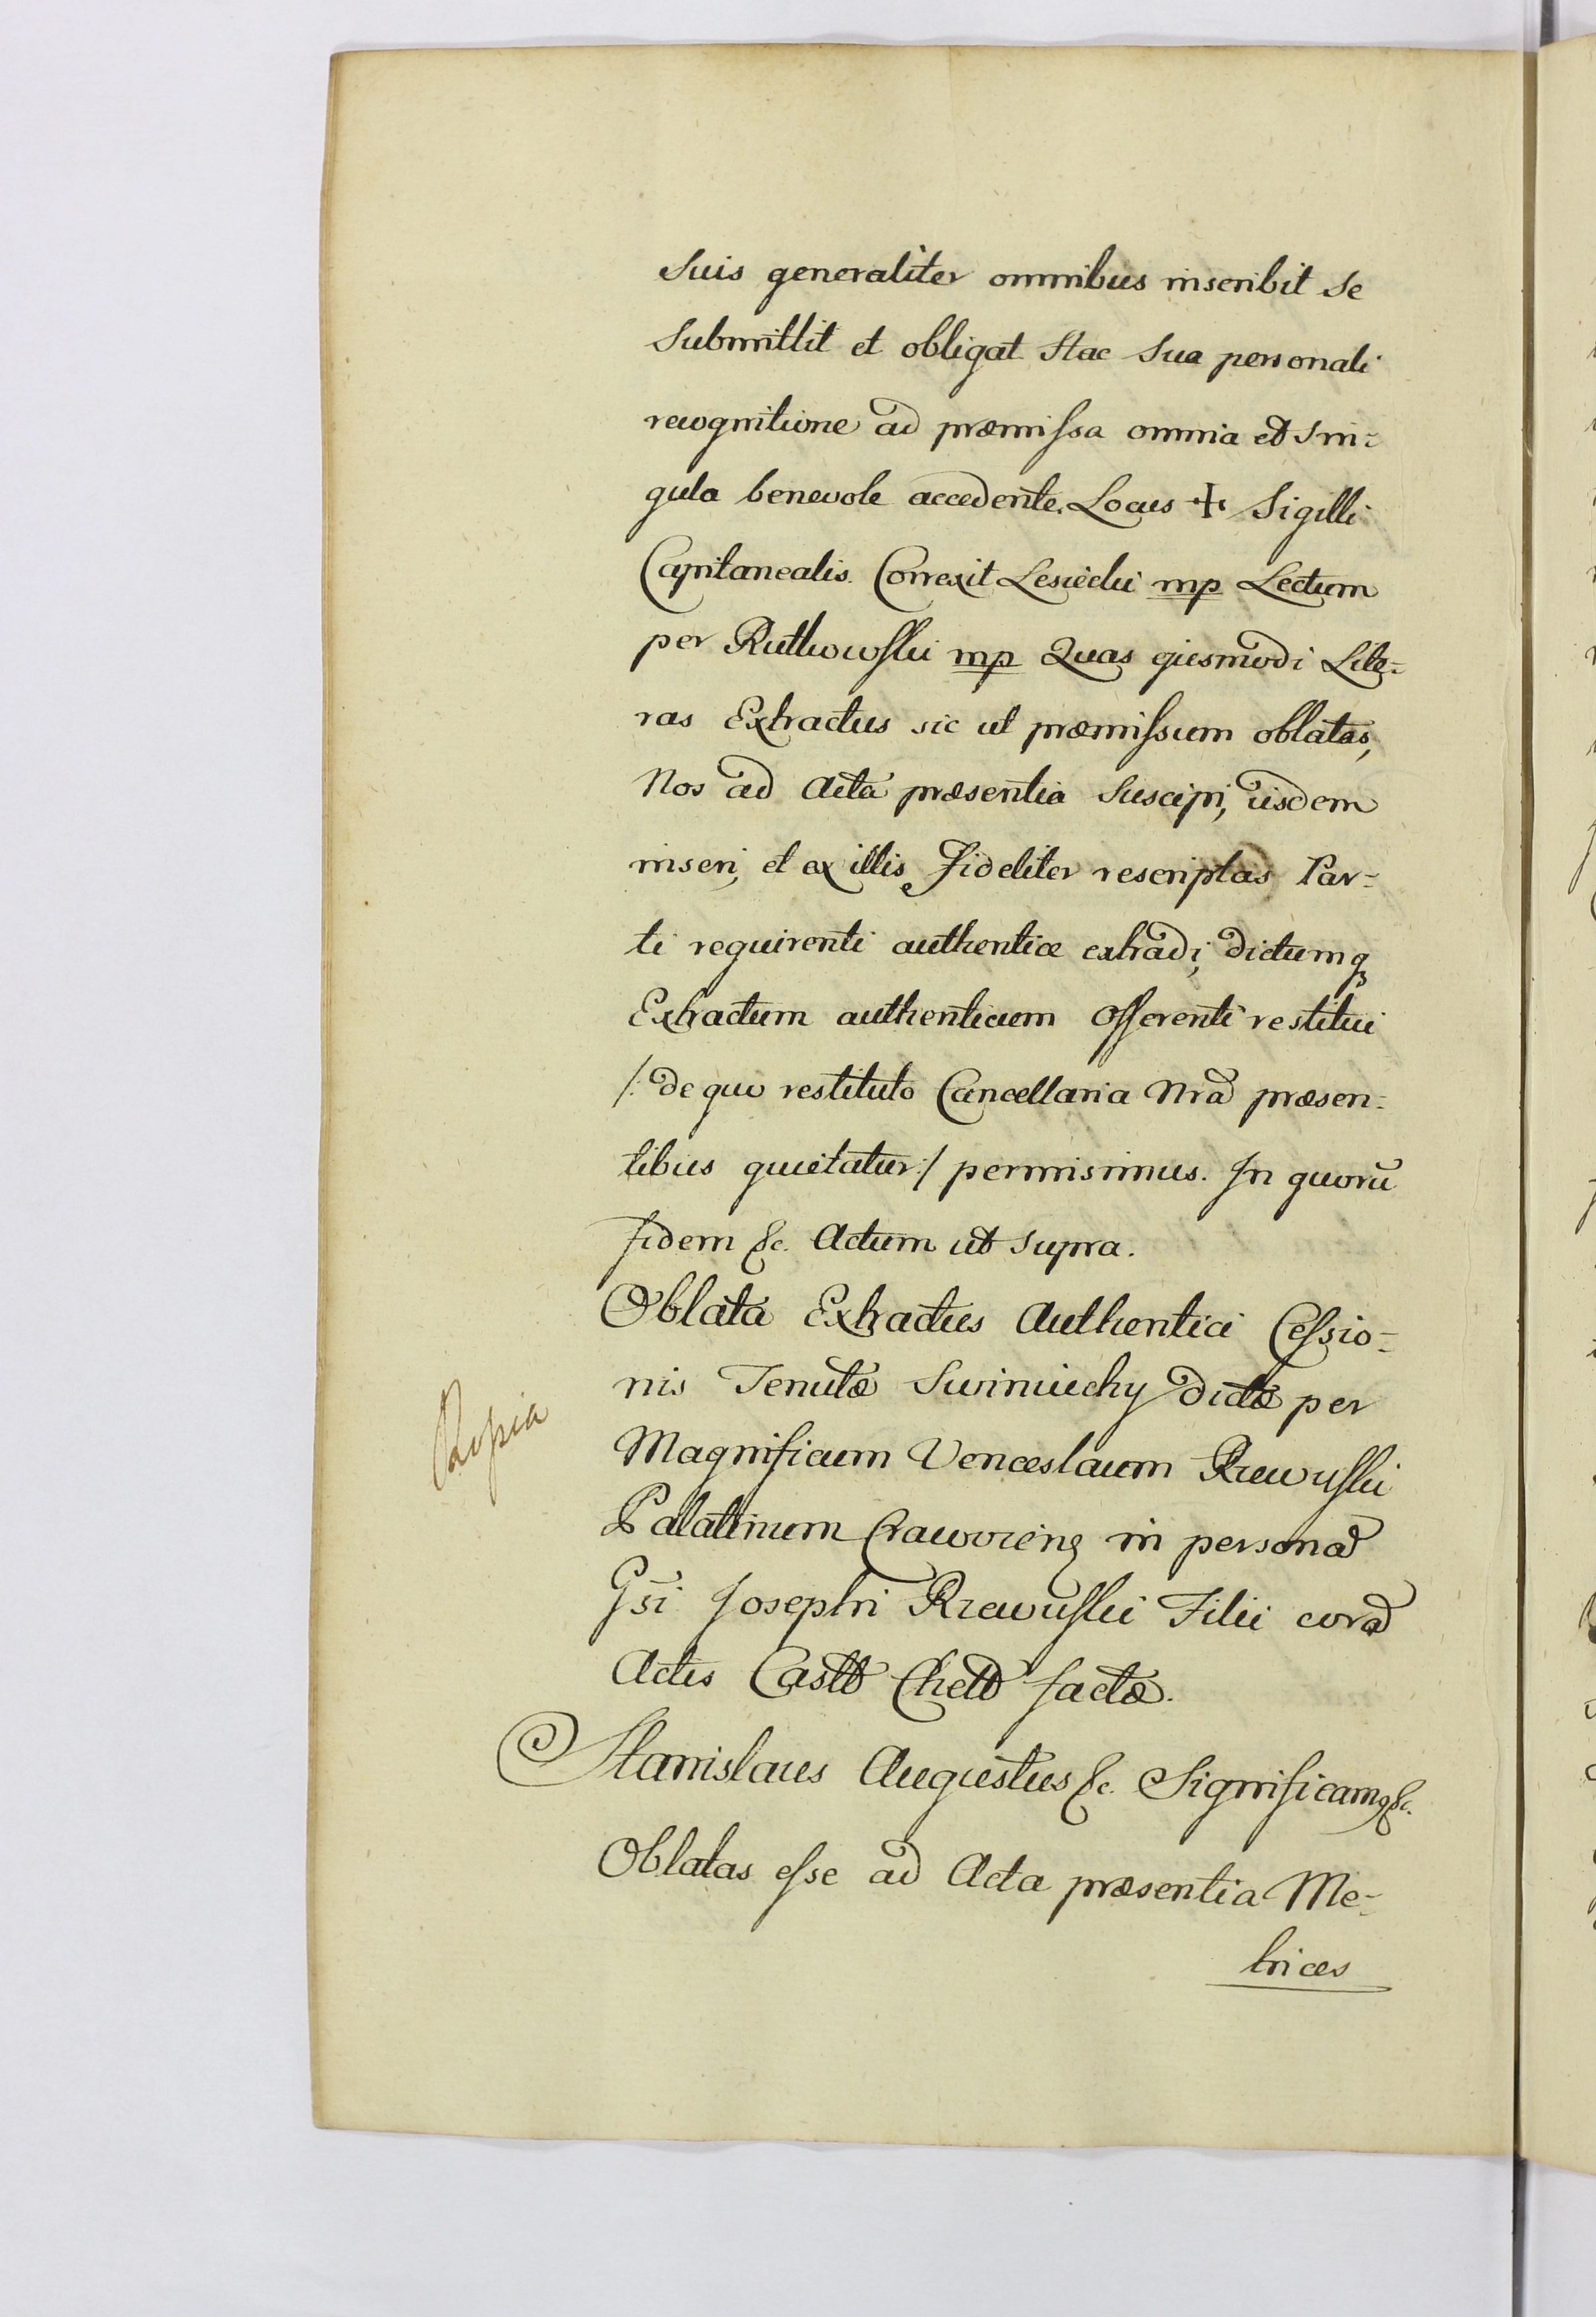 suis generaliter omnibus inscribit se
submittit et obligat Hac sua personali
recognitione ad præmissa omnia et sin=
gula benevole accedente. Locus ✝ Sigilli
Capitanealis. Correxit Lesiecki mp Lectum
per Rutkowski mp Quas ejusmodi Lite=
ras Extractus sic ut præmissum oblatas,
Nos ad Acta præsentia suscipi, iisdem
inseri, et ex illis fideliter rescriptas Par=
ti requirenti authentice extradi, dictumq
Extractum authenticum Offerenti restitui
/: de quo restituto Cancellaria Nra præsen=
tibus quietatur :/ permisimus. In quorũ
fidem &c. Actum ut supra.
Oblata Extractus Authentici Cessio=
nis Tenutæ Swiniuchy dictæ per
Rossia
Magnificum Venceslaum Rzewuski
Palatinum Cracovien in persona
Gsi Josephi Rzewuski Filii cora
Actis Castr Chelm factæ.
Stanislaus Augustus &c. Significamq &c.
Oblatas esse ad Acta præsentia Me=
trices